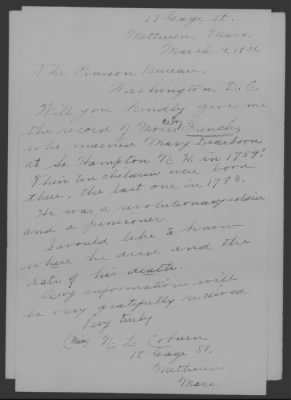 18 Gage St.
Methuen, Mass.
March 4, 1921.
The Pension Bureau,
Washington, D. C.
Will you kindly give me
the record of Moses French,
who married Mary
at So Hampton N. H. in 1759?
Their ten children were born
there, the last one in 1793.
He was a revolutionary soldier
and a pensioner.
I would like to know
where he died and the
date of his death.
Any information will
be very gratefully received.
Very truly
(Miss) N. L. Coburn
18 Gage St.
Methuen
Mass